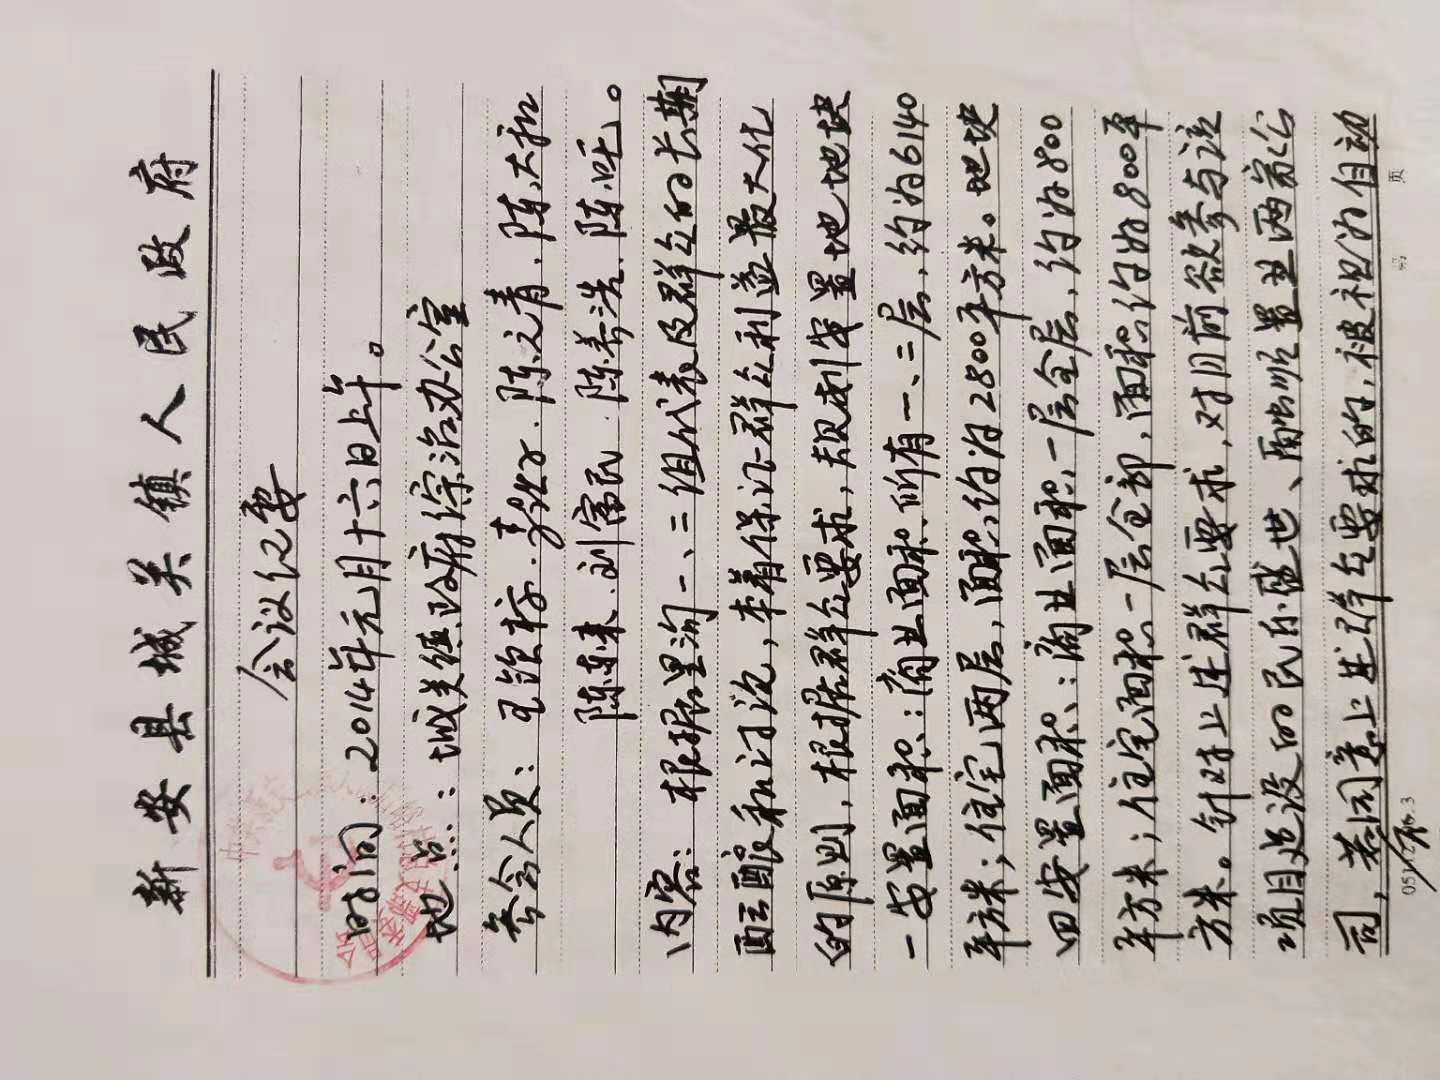 新安县城关镇人民政府
会议纪要
时间：2014年元月十六日上午。
地点：城关镇政府综治办公室
参会人员：王铁标、陈文青、陈大和
陈东来、刘富民、陈寿先、陈旺。
内容：根据涧一、二组代表及群众的长期
酝酿和讨论，本着保证群众利益最大化
的原则，根据群众要求，规划安置地地块
一安置面积：商业面积所有一、二层，约为6140
平方米；住宅两层，面积约为2800平方米。地块
四安置面积：商业面积一层全层，约为800
平方米；住宅面积一层全部，面积约为800平
方米。针对上述群众要求，对目前欲参与该
项目建设的民乐盛世、顺置业两家公
司，若同意上述群众要求的，被视为自动
页